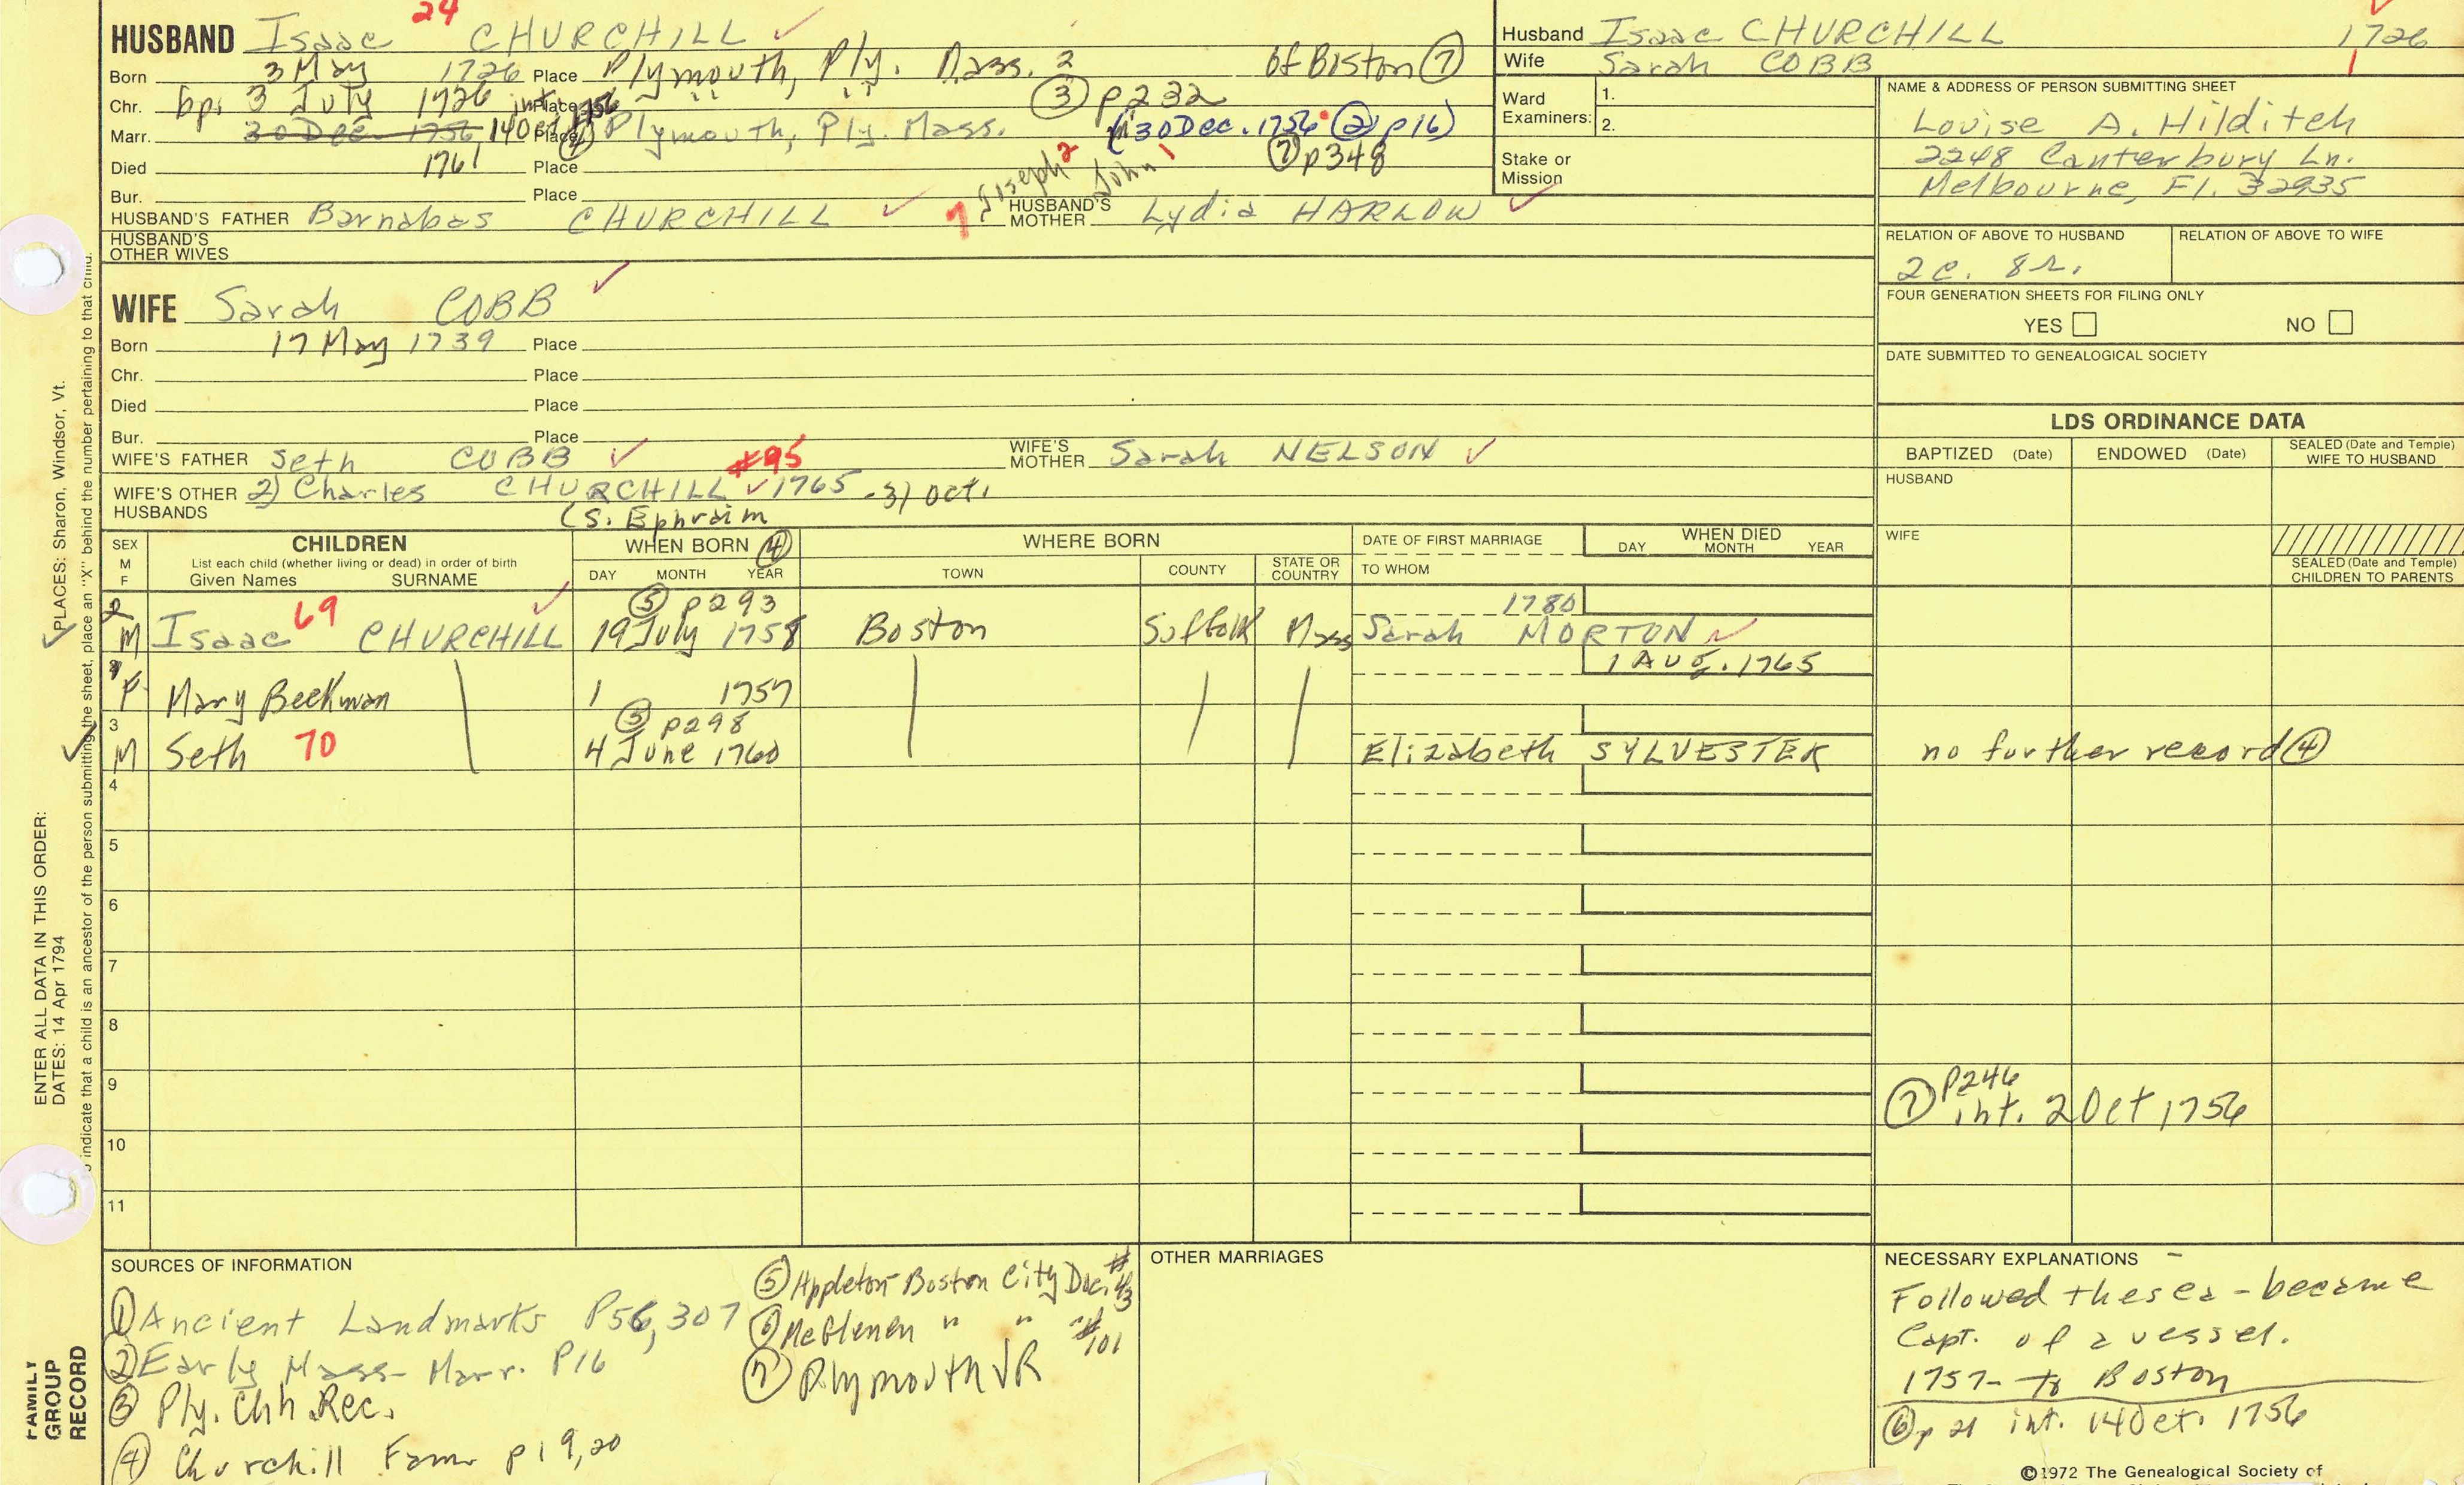 24
HUSBAND Isaac CHURCHILL ✓
Born 3 May 1726 Place Plymouth, Ply. Mass. 2 of Boston ⑦
Chr. bp. 3 July 1726 Place " " " " ③ p232
Marr. 30 Dec 1756, 14 Oct int. 1756 Place ④ Plymouth, Ply. Mass. (m 30 Dec. 1756 ② p16)
Died 1761 Place ⑦ p348
Bur. Place
Joseph 2 John 1
HUSBAND'S FATHER Barnabas CHURCHILL ✓ 7 HUSBAND'S MOTHER Lydia HARLOW ✓
HUSBAND'S OTHER WIVES
WIFE Sarah COBB ✓
Born 17 May 1739 Place
Chr. Place
Died Place
Bur. Place
WIFE'S FATHER Seth COBB ✓ #95 WIFE'S MOTHER Sarah NELSON ✓
WIFE'S OTHER HUSBANDS 2) Charles CHURCHILL ✓ 1765 - 31 Oct.
(S. Ephraim
Husband Isaac CHURCHILL 1726
Wife Sarah COBB 1
Ward Examiners: 1.
2.
Stake or Mission
NAME & ADDRESS OF PERSON SUBMITTING SHEET
Louise A. Hilditch
2248 Canterbury Ln.
Melbourne, Fl. 32935
RELATION OF ABOVE TO HUSBAND RELATION OF ABOVE TO WIFE
2c. 8r.
FOUR GENERATION SHEETS FOR FILING ONLY
YES NO
DATE SUBMITTED TO GENEALOGICAL SOCIETY
LDS ORDINANCE DATA
BAPTIZED (Date) ENDOWED (Date) SEALED (Date and Temple) WIFE TO HUSBAND
HUSBAND
WIFE
SEALED (Date and Temple) CHILDREN TO PARENTS
SEX M F CHILDREN WHEN BORN ④ WHERE BORN DATE OF FIRST MARRIAGE WHEN DIED
List each child (whether living or dead) in order of birth
Given Names SURNAME DAY MONTH YEAR TOWN COUNTY STATE OR COUNTRY TO WHOM DAY MONTH YEAR
⑤ p293 1780
2 M Isaac 69 CHURCHILL ✓ 19 July 1758 Boston Suffolk Mass Sarah MORTON ✓
1 Aug. 1765
F Mary Beekman 1 1757
⑤ p298
3 M Seth 70 4 June 1760 Elizabeth SYLVESTER no further record ④
4
5
6
7
8
9
⑦ p246
int. 2 Oct 1756
10
11
SOURCES OF INFORMATION
① Ancient Landmarks P56, 307
② Early Mass Marr. P16
③ Ply. Chh Rec.
④ Churchill Fam p19,20
⑤ Appleton-Boston City Doc. #43
⑥ McGlenen " " #101
⑦ Plymouth VR
OTHER MARRIAGES
NECESSARY EXPLANATIONS
Followed the sea - became
Capt. of a vessel.
1757- to Boston
⑥ p 21 int. 14 Oct. 1756
©1972 The Genealogical Society of
ENTER ALL DATA IN THIS ORDER:
DATES: 14 Apr 1794
PLACES: Sharon, Windsor, Vt.
indicate that a child is an ancestor of the person submitting the sheet, place an "X" behind the number pertaining to that child.
FAMILY
GROUP
RECORD